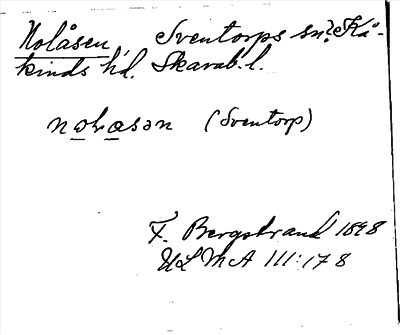 Nolåsen, Sventorps sn, Kå-
kinds hd. Skarab. l.
(Sventorp)
F. Bergstrand 1898
ULMA 111:178